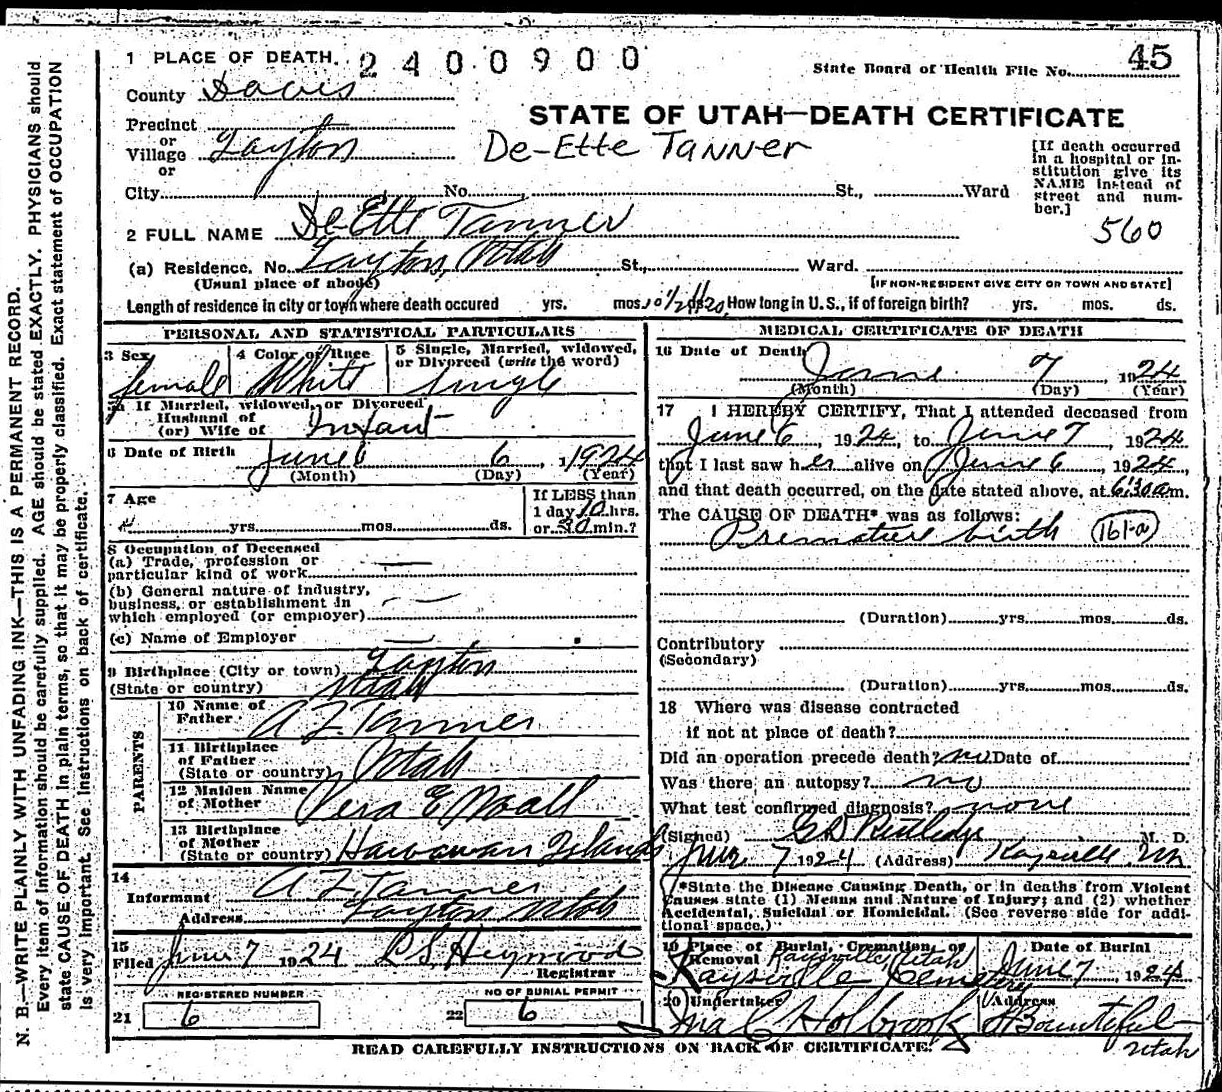 N. B.—WRITE PLAINLY WITH UNFADING INK—THIS IS A PERMANENT RECORD.
Every item of information should be carefully supplied. AGE should be stated EXACTLY. PHYSICIANS should
state CAUSE OF DEATH in plain terms, so that it may be properly classified. Exact statement of OCCUPATION
is very important. See instructions on back of certificate.
1 PLACE OF DEATH. 2400900
45
State Board of Health File No.
County Davis
STATE OF UTAH—DEATH CERTIFICATE
Precinct
or
Village Layton
or
De-Ette Tanner
[If death occurred
in a hospital or in-
stitution give its
NAME instead of
street and num-
ber.]
City No. St., Ward
560
2 FULL NAME DeEtte Tanner
(a) Residence. No. Layton, Utah St., Ward.
(Usual place of abode) [IF NON-RESIDENT GIVE CITY OR TOWN AND STATE]
Length of residence in city or town where death occured yrs. mos. 10 1/2 Hrs ds. How long in U.S., if of foreign birth? yrs. mos. ds.
PERSONAL AND STATISTICAL PARTICULARS
3 Sex 4 Color or Race 5 Single, Married, widowed,
or Divorced (write the word)
female White Single
5a If Married, widowed, or Divorced
Husband of
(or) Wife of Infant
6 Date of Birth June 6 6, 1924
(Month) (Day) (Year)
7 Age If LESS than
1 day 10 hrs.
yrs. mos. ds. or 30 min.?
8 Occupation of Deceased
(a) Trade, profession or
particular kind of work —
(b) General nature of industry,
business, or establishment in
which employed (or employer) —
(c) Name of Employer —
9 Birthplace (City or town) Layton
(State or country) Utah
PARENTS
10 Name of
Father A Z Tanner
11 Birthplace
of Father
(State or country) Utah
12 Maiden Name
of Mother Vera E Noall
13 Birthplace
of Mother
(State or country) Hawaiian Islands
14
Informant A Z Tanner
Address Layton Utah
15
Filed June 7 1924 Heywood
Registrar
REGISTERED NUMBER NO OF BURIAL PERMIT
21 6 22 6
MEDICAL CERTIFICATE OF DEATH
16 Date of Death June 7, 1924
(Month) (Day) (Year)
17 I HEREBY CERTIFY, That I attended deceased from
June 6, 1924, to June 7, 1924
that I last saw her alive on June 6, 1924
and that death occurred, on the date stated above, at 6:30 a m.
The CAUSE OF DEATH* was as follows:
Premature birth 161-a
(Duration) yrs. mos. ds.
Contributory
(Secondary)
(Duration) yrs. mos. ds.
18 Where was disease contracted
if not at place of death?
Did an operation precede death? no Date of
Was there an autopsy? no
What test confirmed diagnosis? none
(Signed) G D Rutledge M. D.
June 7 1924 (Address) Kaysville Ut
*State the Disease Causing Death, or in deaths from Violent
Causes state (1) Means and Nature of Injury; and (2) whether
Accidental, Suicidal or Homicidal. (See reverse side for addi-
tional space.)
19 Place of Burial, Cremation, or Date of Burial
Removal Kaysville, Utah
Kaysville Cemetery June 7 1924
20 Undertaker Address
Ina C Holbrook Bountiful
Utah
READ CAREFULLY INSTRUCTIONS ON BACK OF CERTIFICATE.